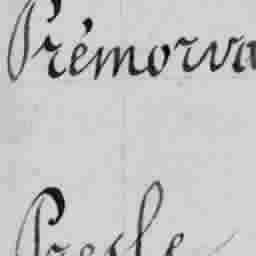 Prémorva
Presle